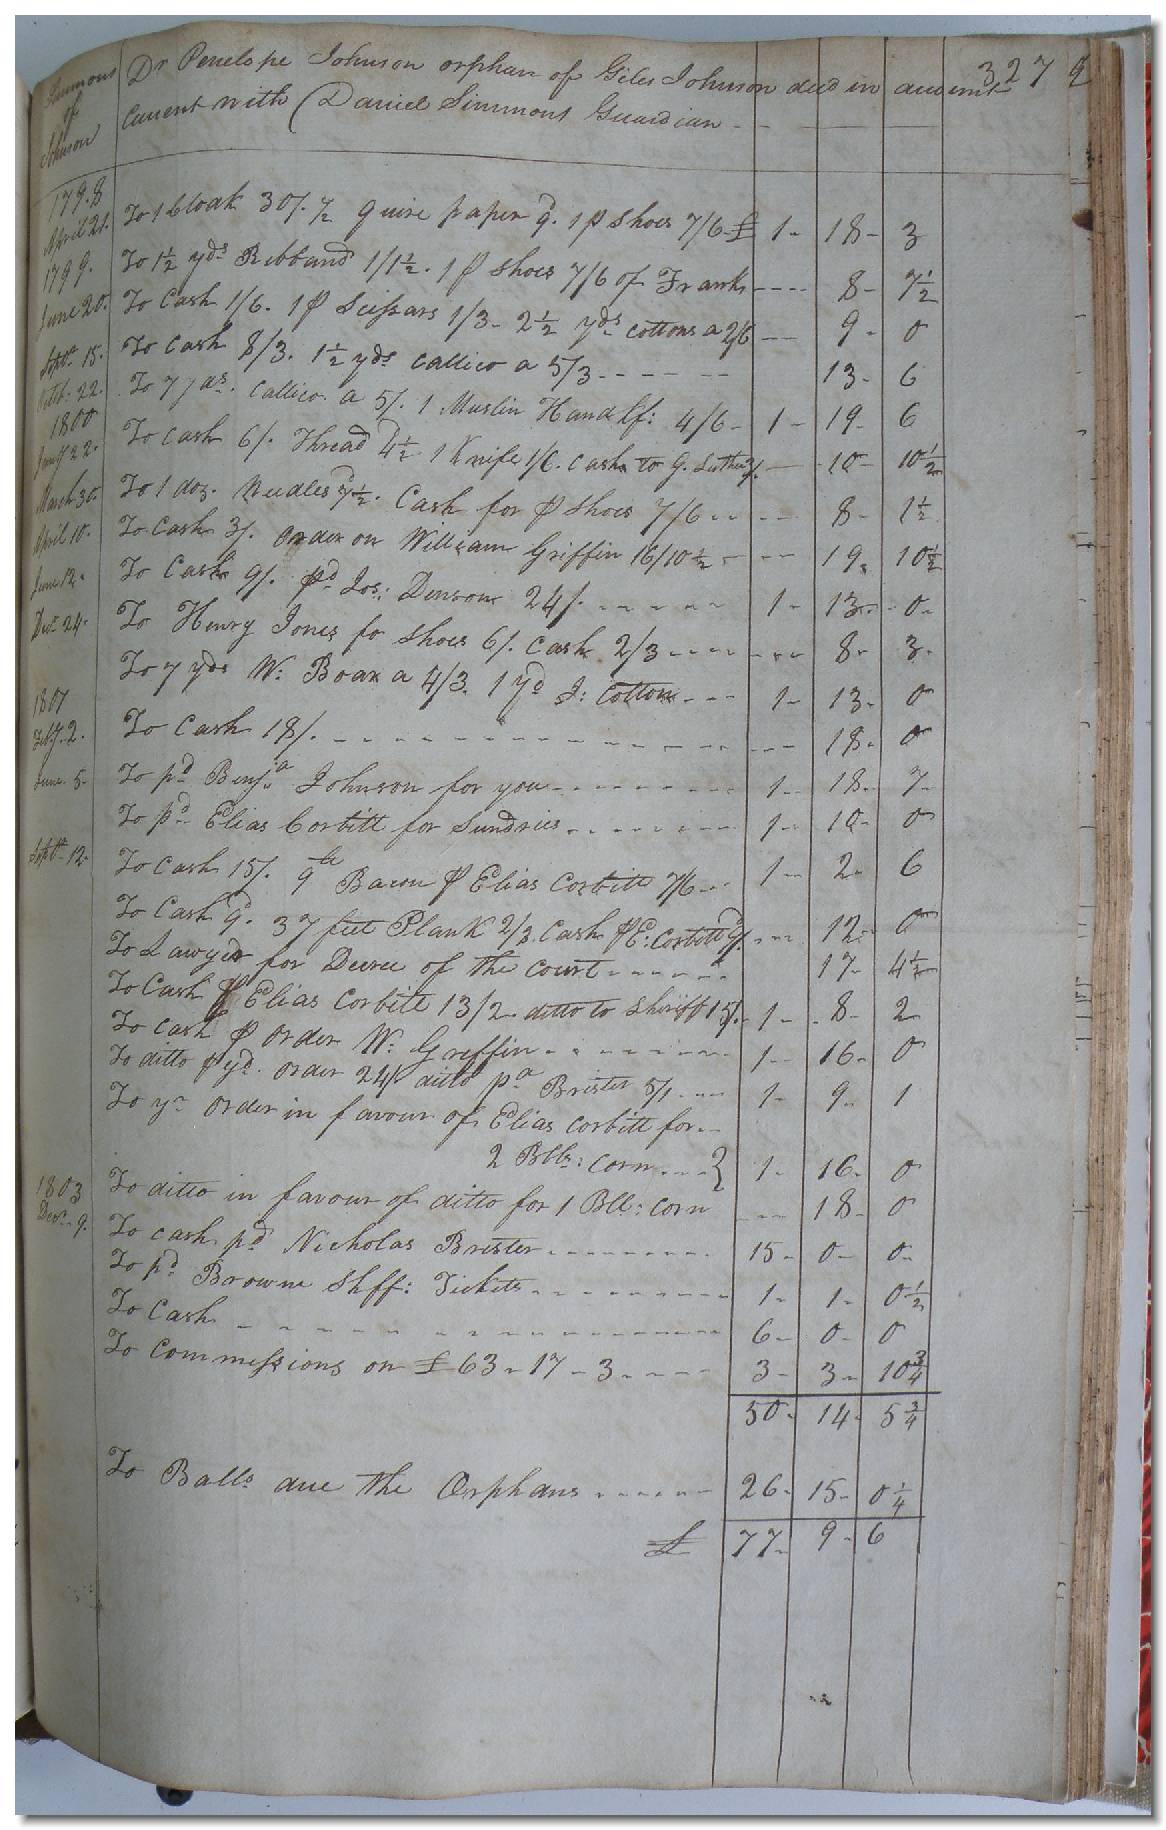 327
Simmons
of
Johnson
Dr Penelope Johnson orphan of Giles Johnson decd in account
Current with Daniel Simmons Guardian
1798
April 21. To 1 Cloak 30/. ½ quire paper 9d. 1 p Shoes 7/6 £ 1 - 18 - 3
1799.
June 20. To 1½ yds Ribband 1/1½. 1 p Shoes 7/6 of Frank ---- 8 - 7½
To Cash 1/6. 1 p Scissars 1/3 - 2½ yds cottons a 2/6 -- 9 - 0
Septr 15. To Cash 8/3. 1½ yds Callico a 5/3 ------ 13 - 6
Octb: 22. To 7 yds. Callico. a 5/. 1 Muslin Handkf: 4/6 - 1 - 19 - 6
1800
Jany 22. To Cash 6/. Thread 4½d 1 Knife 1/6. Cash to G. -- 10 - 10½
March 30. To 1 doz. Needles 7½d. Cash for p Shoes 7/6 .. -- 8 - 1½
April 10. To Cash 3/. order on William Griffin 16/10½ - -- 19. 10½
June 12. To Cash 9/. pd Jos: Denson 24/. ------ 1 - 13 - 0
Decr 24. To Henry Jones for Shoes 6/. Cash 2/3 ------- 8 - 3
To 7 yds W: Boax a 4/3. 1 yd J: Cotton --- 1 - 13 - 0
1801
Feby 2. To Cash 18/. ------------ 18 - 0
June 5. To pd Benja Johnson for you -------- 1 - 18 - 7
To pd Elias Corbitt for Sundries ------- 1 - 10 - 0
Septr 12. To Cash 15/. 9 lb Bacon p Elias Corbitt 7/6 -- 1 - 2 - 6
To Cash 9d. 37 feet Plank 2/3 Cash p E: Corbitt 9/. --- 12 - 0
To Lawyer for Decree of the Court ------ 17 - 4½
To Cash p Elias Corbitt 13/2 ditto to Sheriff 15/. - 1 - 8 - 2
To Cash p order W: Griffin ------- 1 - 16 - 0
To ditto p yr. order 24/ ditto pd Brister 5/1 --- 1 - 9 - 1
To yr order in favour of Elias Corbitt for --
2 Blls: corn ---} 1 - 16 - 0
1803
Decr. 9. To ditto in favour of ditto for 1 Bll: corn --- 18 - 0
To cash pd Nicholas Brister -------- 15 - 0 - 0
To pd Browne Shff: Tickets -------- 1 - 1 - 0½
To Cash ------------ 6 - 0 - 0
To Commissions on £ 63 - 17 - 3 ---- 3 - 3 - 10¾
50 - 14 - 5¾
To Balle due the Orphans ------ 26 - 15 - 0¼
£ 77 - 9 - 6